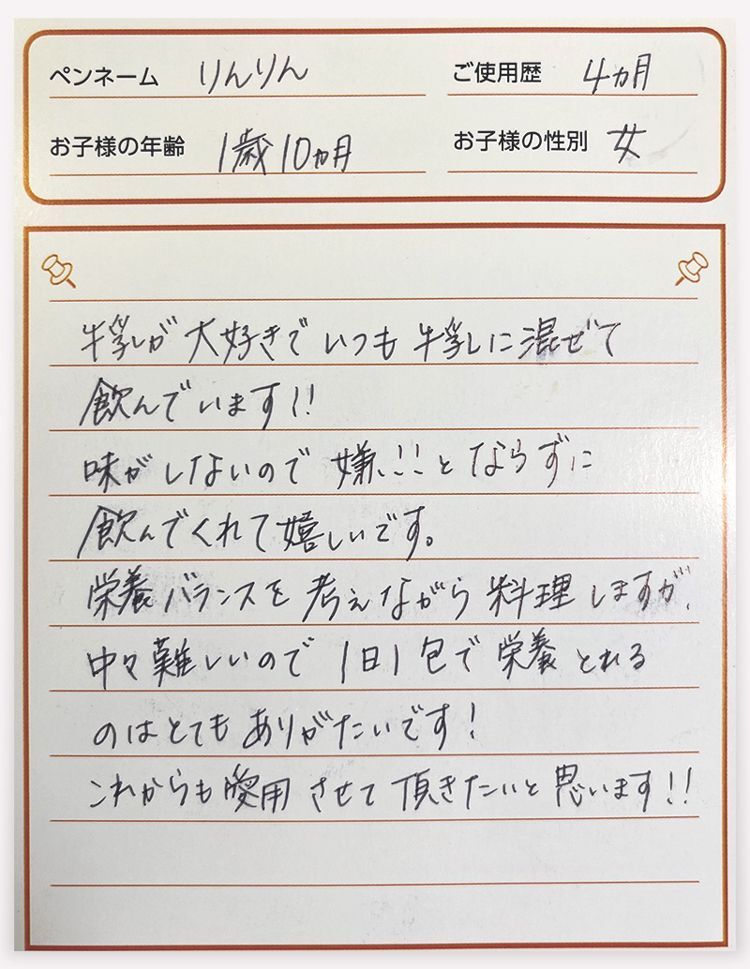 ペンネーム りんりん ご使用歴 4ヵ月
お子様の年齢 1歳10ヵ月 お子様の性別 女
牛乳が大好きでいつも牛乳に混ぜて
飲んでいます!!
味がしないので嫌!!とならずに
飲んでくれて嬉しいです。
栄養バランスを考えながら料理しますが、
中々難しいので1日1包で栄養とれる
のはとてもありがたいです!
これからも愛用させて頂きたいと思います!!